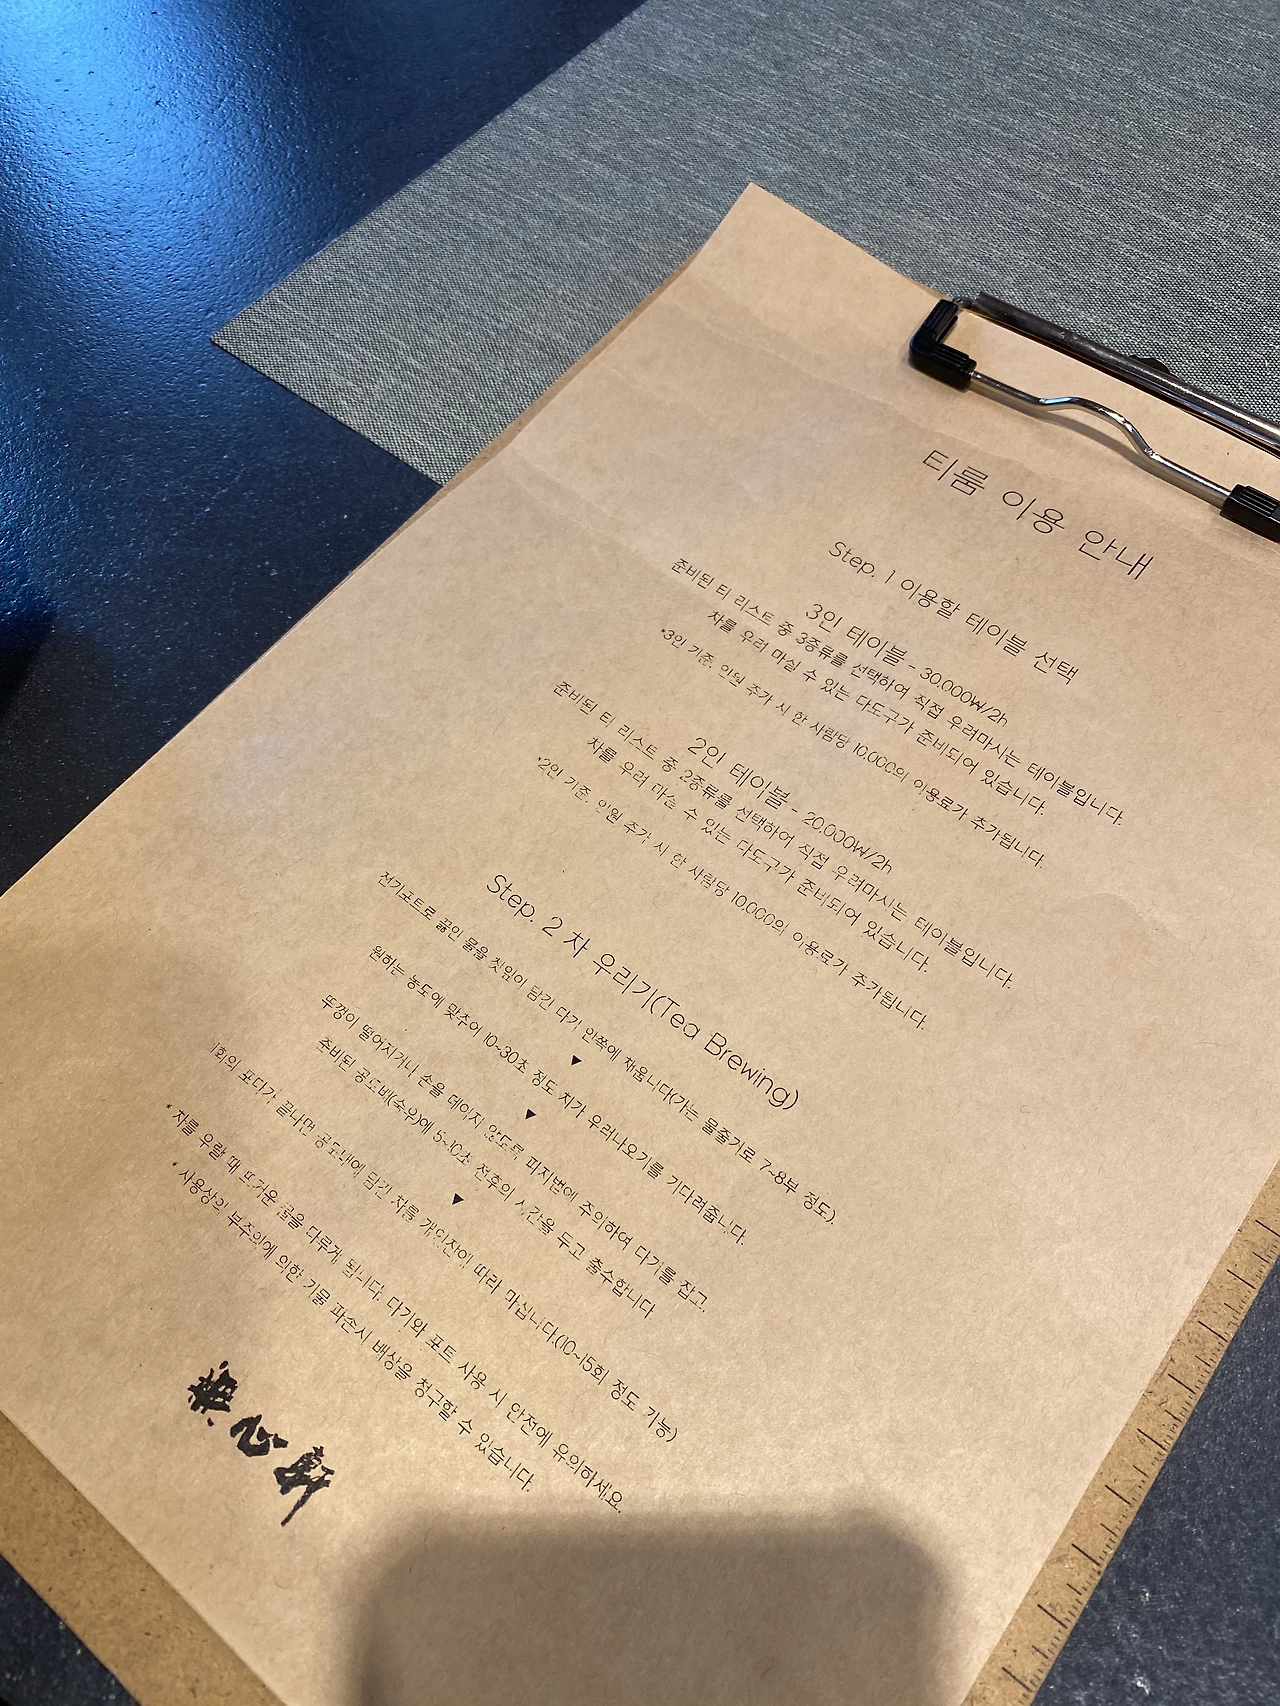 티룸 이용 안내
Step. 1 이용할 테이블 선택
3인 테이블 - 30,000₩/2h
준비된 티 리스트 중 3종류를 선택하여 직접 우려마시는 테이블입니다.
차를 우려 마실 수 있는 다도구가 준비되어 있습니다.
*3인 기준, 인원 추가 시 한 사람당 10,000의 이용료가 추가됩니다.
2인 테이블 - 20,000₩/2h
준비된 티 리스트 중 2종류를 선택하여 직접 우려마시는 테이블입니다.
차를 우려 마실 수 있는 다도구가 준비되어 있습니다.
*2인 기준, 인원 추가 시 한 사람당 10,000의 이용료가 추가됩니다.
Step. 2 차 우리기(Tea Brewing)
전기포트로 끓인 물을 찻잎이 담긴 다기 안쪽에 채웁니다(가는 물줄기로 7~8부 정도).
▼
원하는 농도에 맞추어 10~30초 정도 차가 우러나오기를 기다려줍니다.
▼
뚜껑이 떨어지거나 손을 데이지 않도록 파지법에 주의하여 다기를 잡고,
준비된 공도배(숙우)에 5~10초 전후의 시간을 두고 출수합니다
▼
1회의 포다가 끝나면 공도배에 담긴 차를 개인잔에 따라 마십니다.(10~15회 정도 가능)
* 차를 우릴 때 뜨거운 물을 다루게 됩니다. 다기와 포트 사용 시 안전에 유의하세요.
* 사용상의 부주의에 의한 기물 파손시 배상을 청구할 수 있습니다.
無心軒